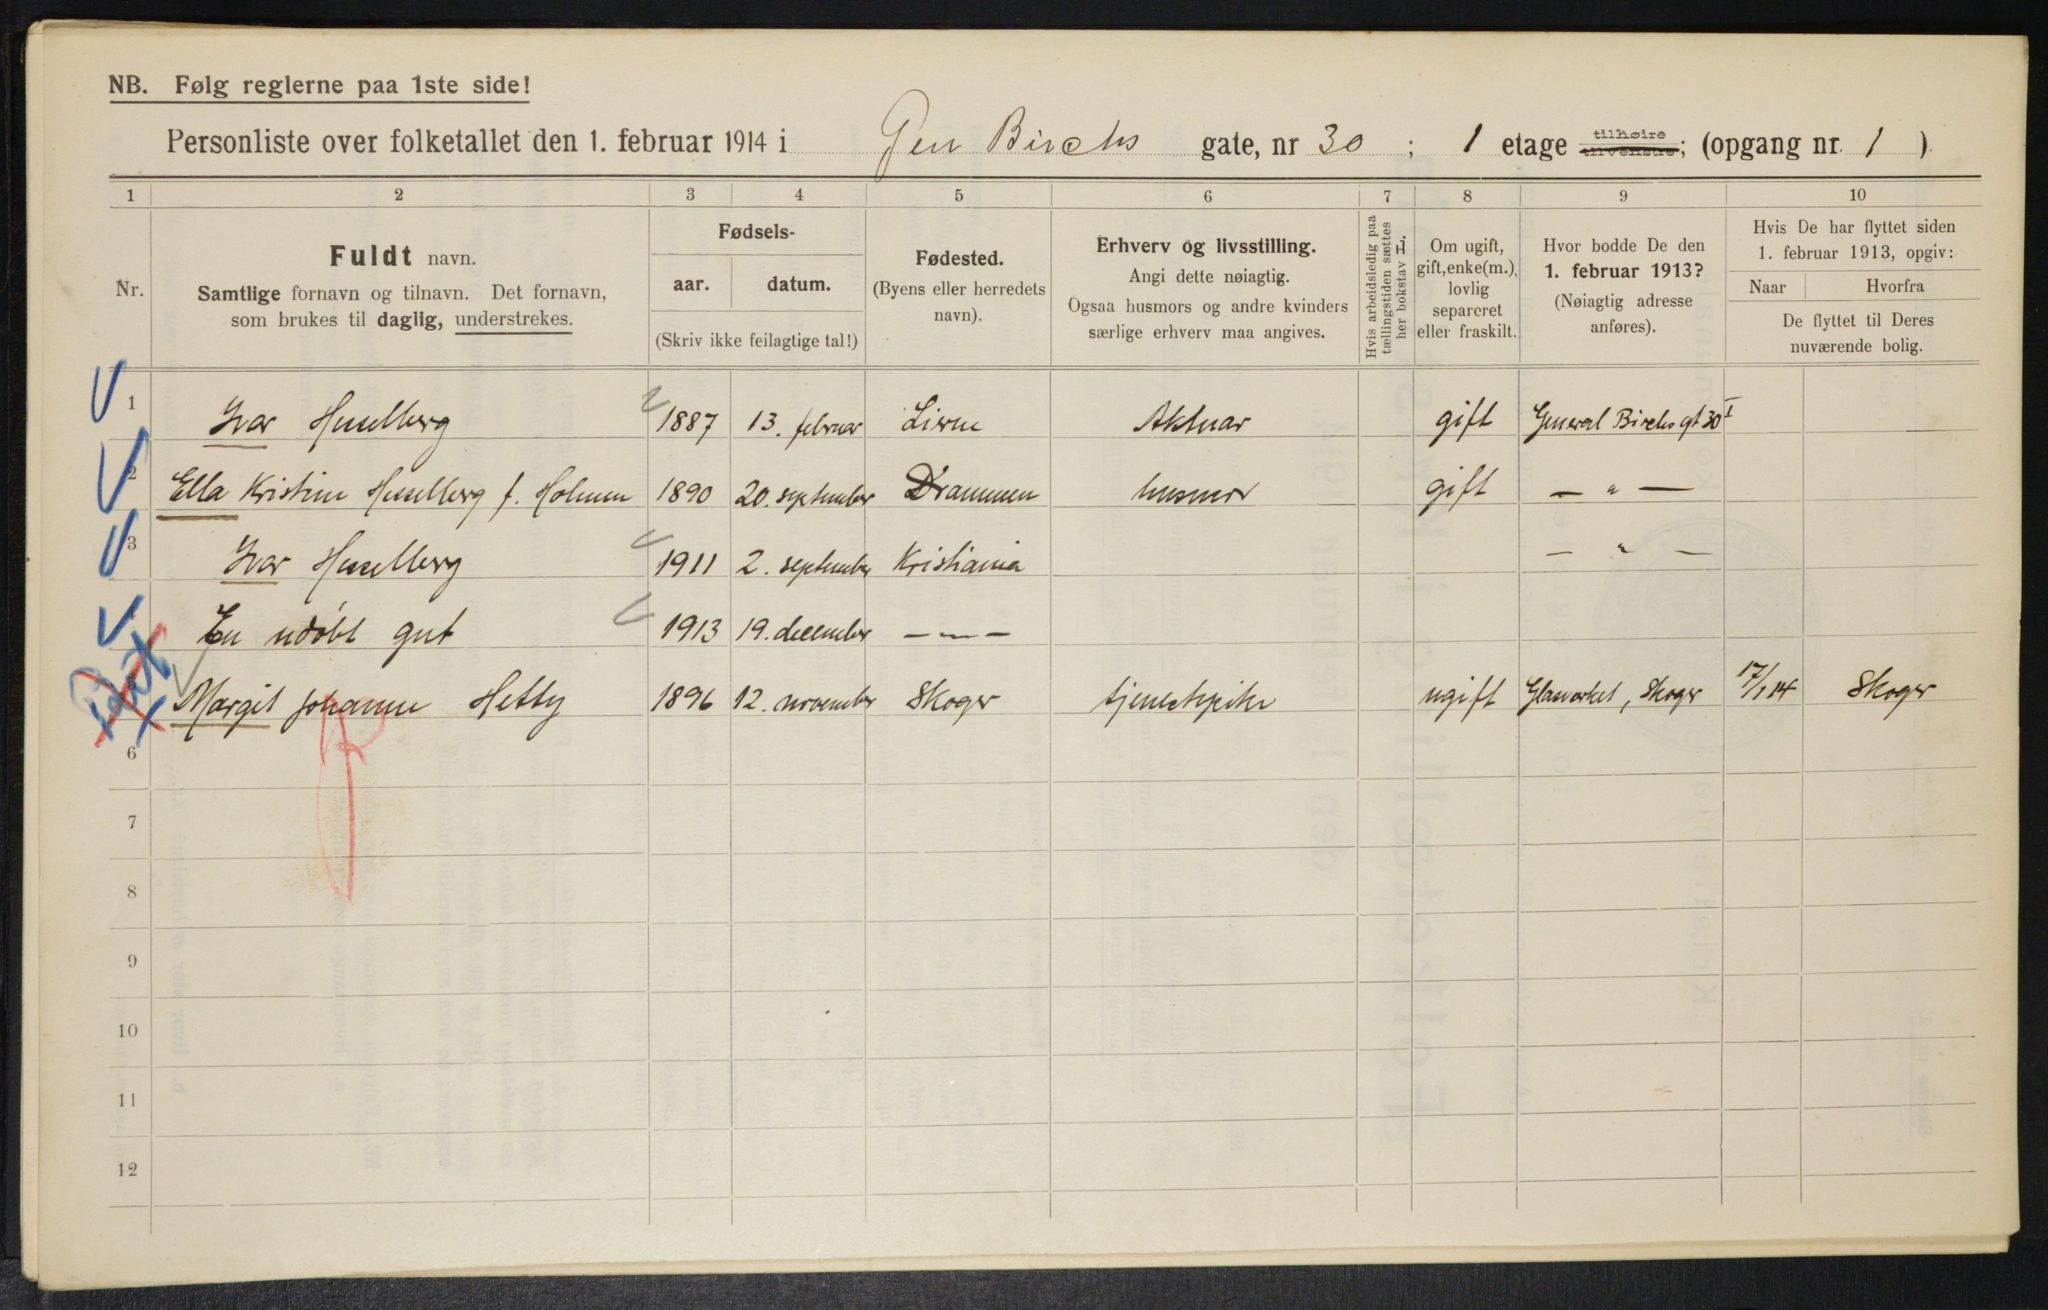 NB. Følg reglerne paa 1ste side!
Personliste over folketallet den 1. februar 1914 i Gen Birchs gate, nr 30 ; 1 etage tilhøire tilvenstre; (opgang nr. 1 )
1 2 3 4 5 6 7 8 9 10
Nr.
Fuldt navn.
Samtlige fornavn og tilnavn. Det fornavn,
som brukes til daglig, understrekes.
Fødsels-
aar. datum.
(Skriv ikke feilagtige tal!)
Fødested.
(Byens eller herredets
navn).
Erhverv og livsstilling.
Angi dette nøiagtig.
Ogsaa husmors og andre kvinders
særlige erhverv maa angives.
Hvis arbeidsledig paa
tællingstiden sættes
her bokstav L.
Om ugift,
gift, enke(m.),
lovlig
separeret
eller fraskilt.
Hvor bodde De den
1. februar 1913?
(Nøiagtig adresse
anføres).
Hvis De har flyttet siden
1. februar 1913, opgiv:
Naar Hvorfra
De flyttet til Deres
nuværende bolig.
1 Ivar Hesselberg 1887 13. februar Lierne Aktuar gift General Birchs gt 30 I
2 Ella Kristine Hesselberg f. Holmen 1890 20. september Drammen husmor gift — " —
3 Ivar Hesselberg 1911 2. september Kristiania — " —
4 En udøbt gut 1913 19. december — " —
Margit Johanne Hetty 1896 12. november Skoger tjenestepike ugift Glasverket, Skoger 17/1 14 Skoger
6
7
8
9
10
11
12